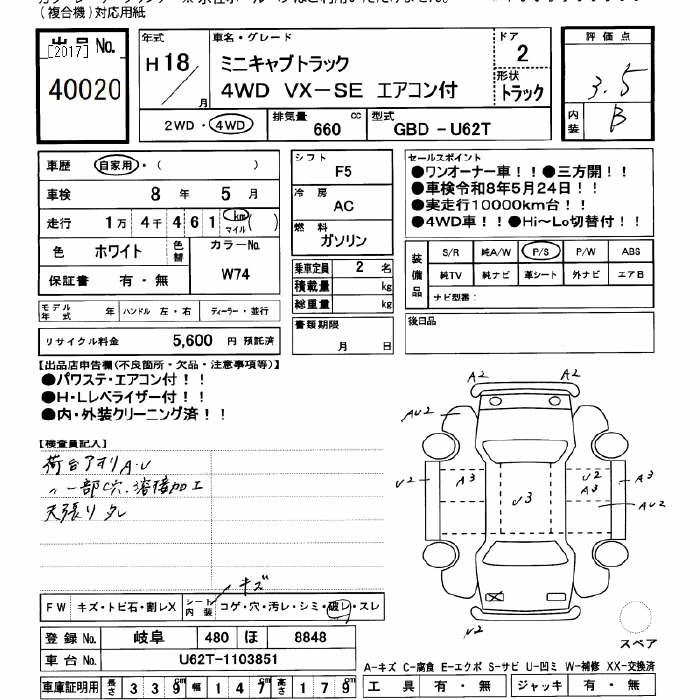 (複合機)対応用紙
出品 No.
[2017]
40020
年式
H18/ 月
車名・グレード
ミニキャブトラック
4WD VX-SE エアコン付
ドア
2
形状
トラック
評価点
3.5
内装
B
2WD・4WD
排気量 660 cc
型式 GBD-U62T
車歴 自家用・( )
車検 8年 5月
走行 1万 4千 4 6 1 km マイル ( )
色 ホワイト 色替
カラーNo. W74
保証書 有・無
シフト F5
冷房 AC
燃料 ガソリン
乗車定員 2 名
積載量 kg
総重量 kg
書類期限
月 日
セールスポイント
●ワンオーナー車!!●三方開!!
●車検令和8年5月24日!!
●実走行10000km台!!
●4WD車!!●Hi〜Lo切替付!!
装備品
S/R 純A/W P/S P/W ABS
純TV 純ナビ 革シート 外ナビ エアB
ナビ型番:
後日品
モデル年式 年 ハンドル 左・右 ディーラー・並行
リサイクル料金 5,600 円 預託済
【出品店申告欄(不良箇所・欠品・注意事項等)】
●パワステ・エアコン付!!
●H・Lレベライザー付!!
●内・外装クリーニング済!!
【検査員記入】
荷台アオリA・U
〃一部穴、溶接加工
天張りタレ
A2 A2
AU2
U2 A3 U3 U2 A3 A3
AU2
X
U2
キズ
FW キズ・トビ石・割レX シート内装 コゲ・穴・汚レ・シミ・破レ・スレ
スペア
登録 No. 岐阜 480 ほ 8848
車台 No. U62T-1103851
A-キズ C-腐食 E-エクボ S-サビ U-凹ミ W-補修 XX-交換済
車庫証明用 長さ 339cm 幅 147cm 高さ 179cm
工具 有・無 ジャッキ 有・無